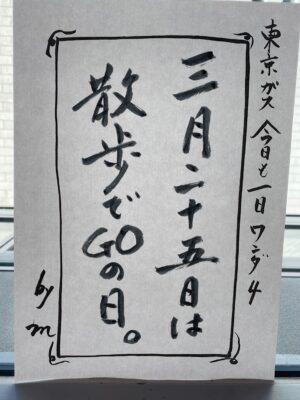 東京ガス 今日も一日ワンダ4
三月二十五日は
散歩でGOの日。
by m